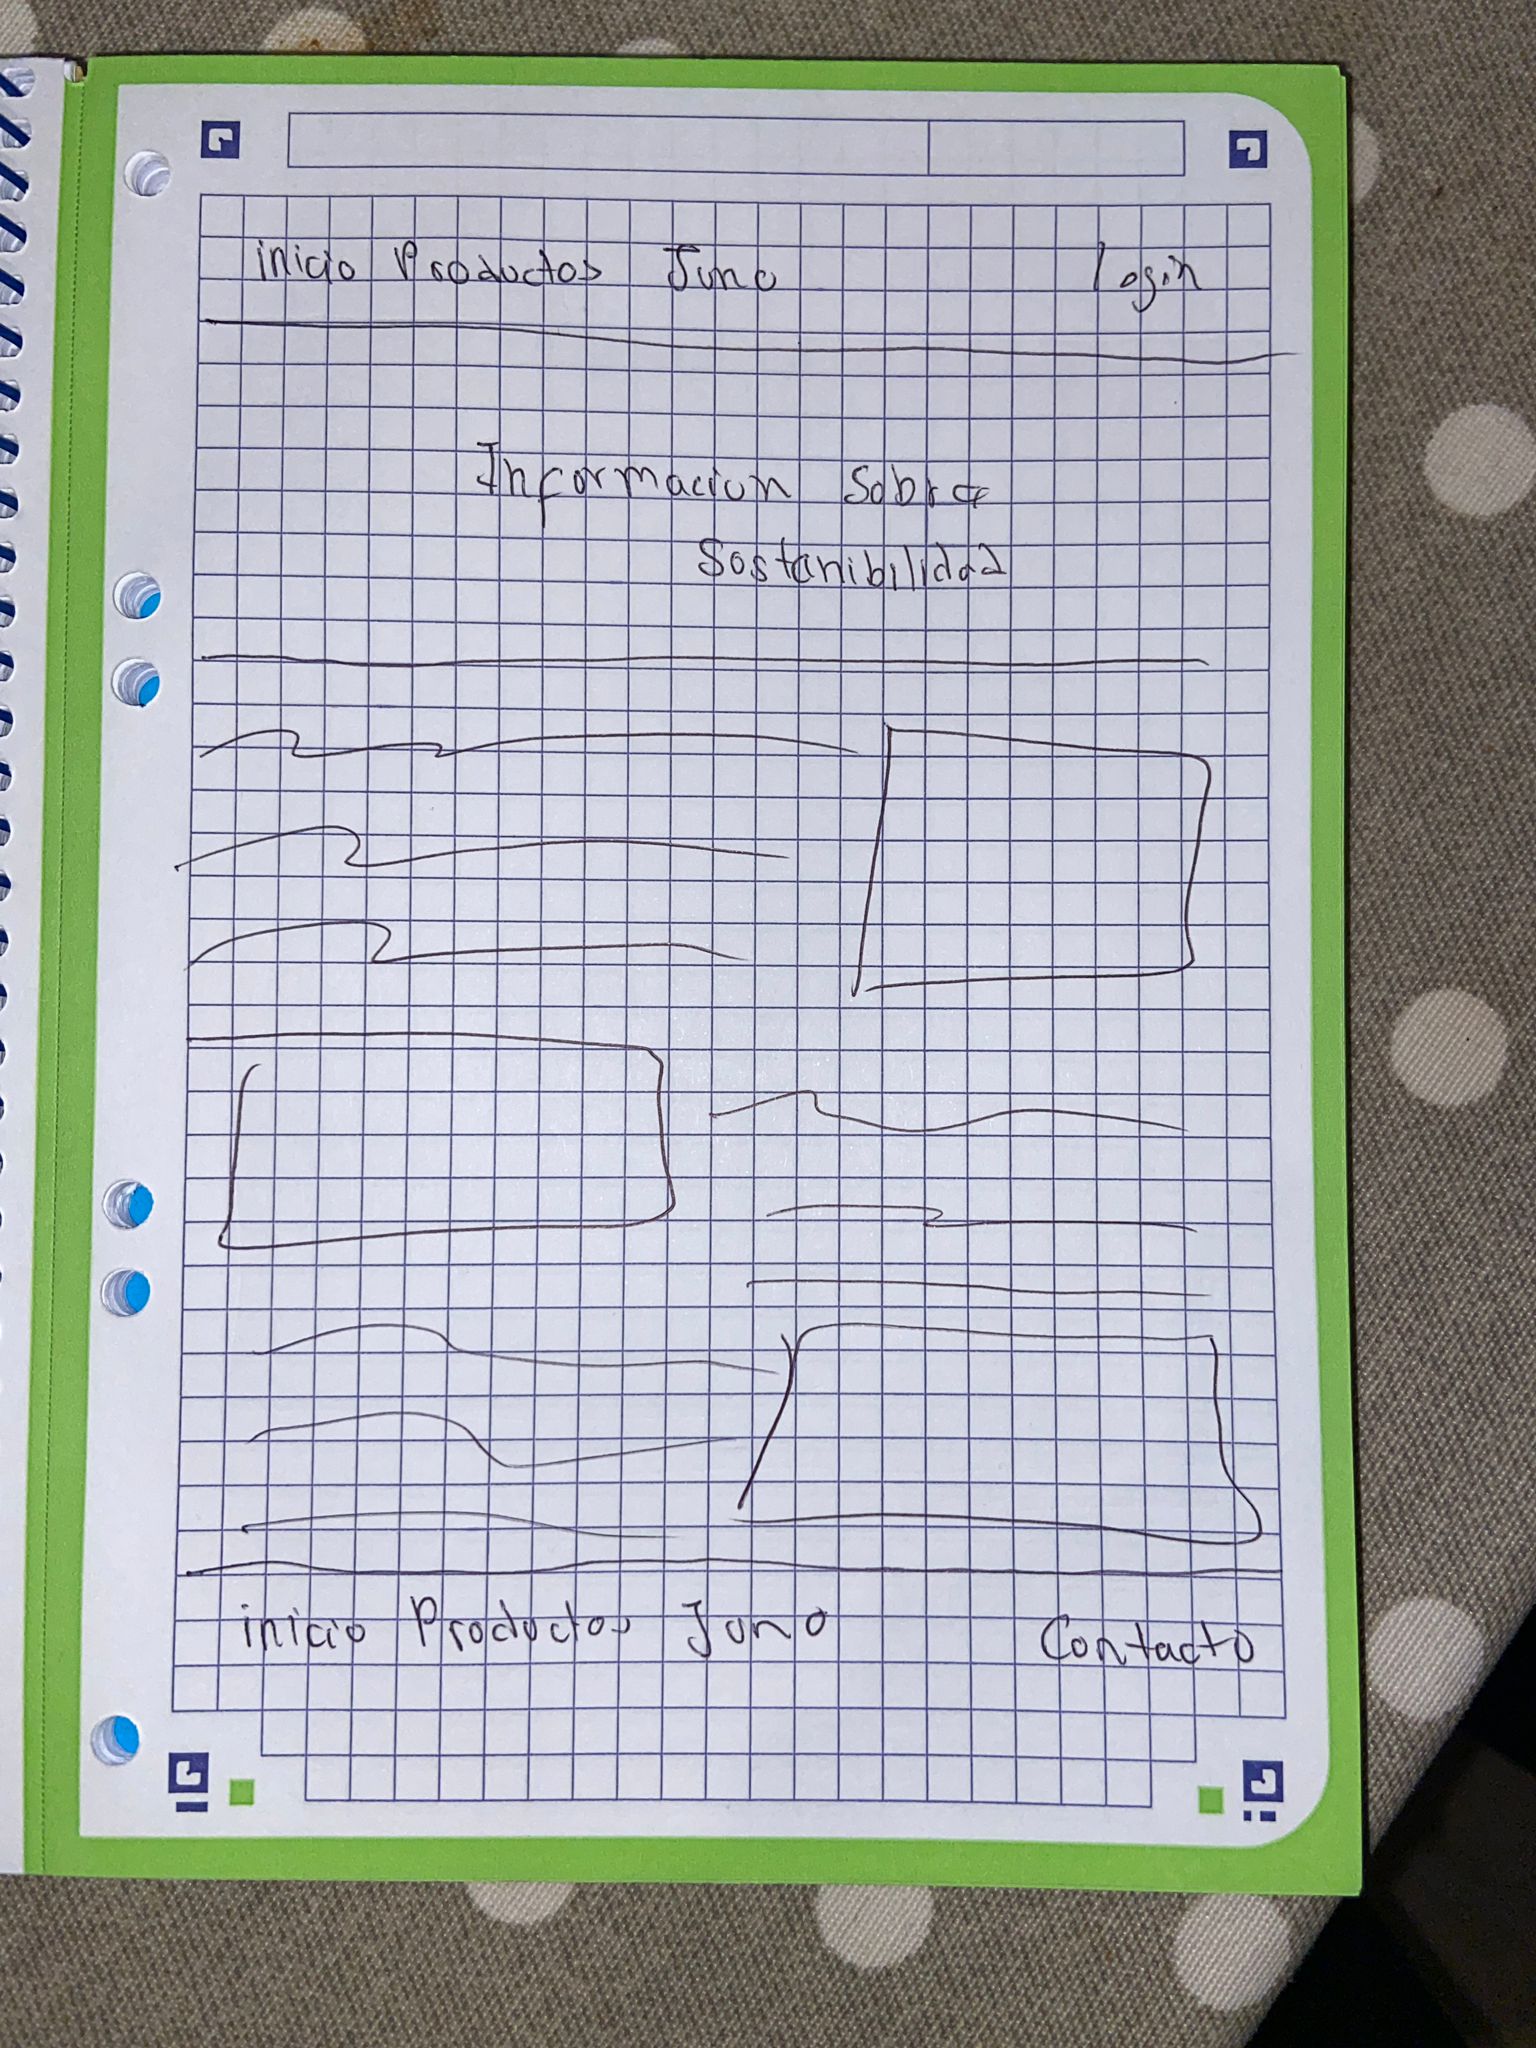 inicio Productos Juno login
Informacion Sobre
Sostenibilidad
inicio Productos Juno Contacto